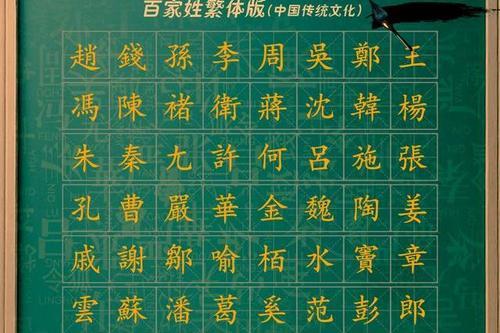 百家姓繁体版(中国传统文化)
趙錢孫李周吳鄭王
馮陳褚衛蔣沈韓楊
朱秦尤許何呂施張
孔曹嚴華金魏陶姜
戚謝鄒喻栢水竇章
雲蘇潘葛奚范彭郎